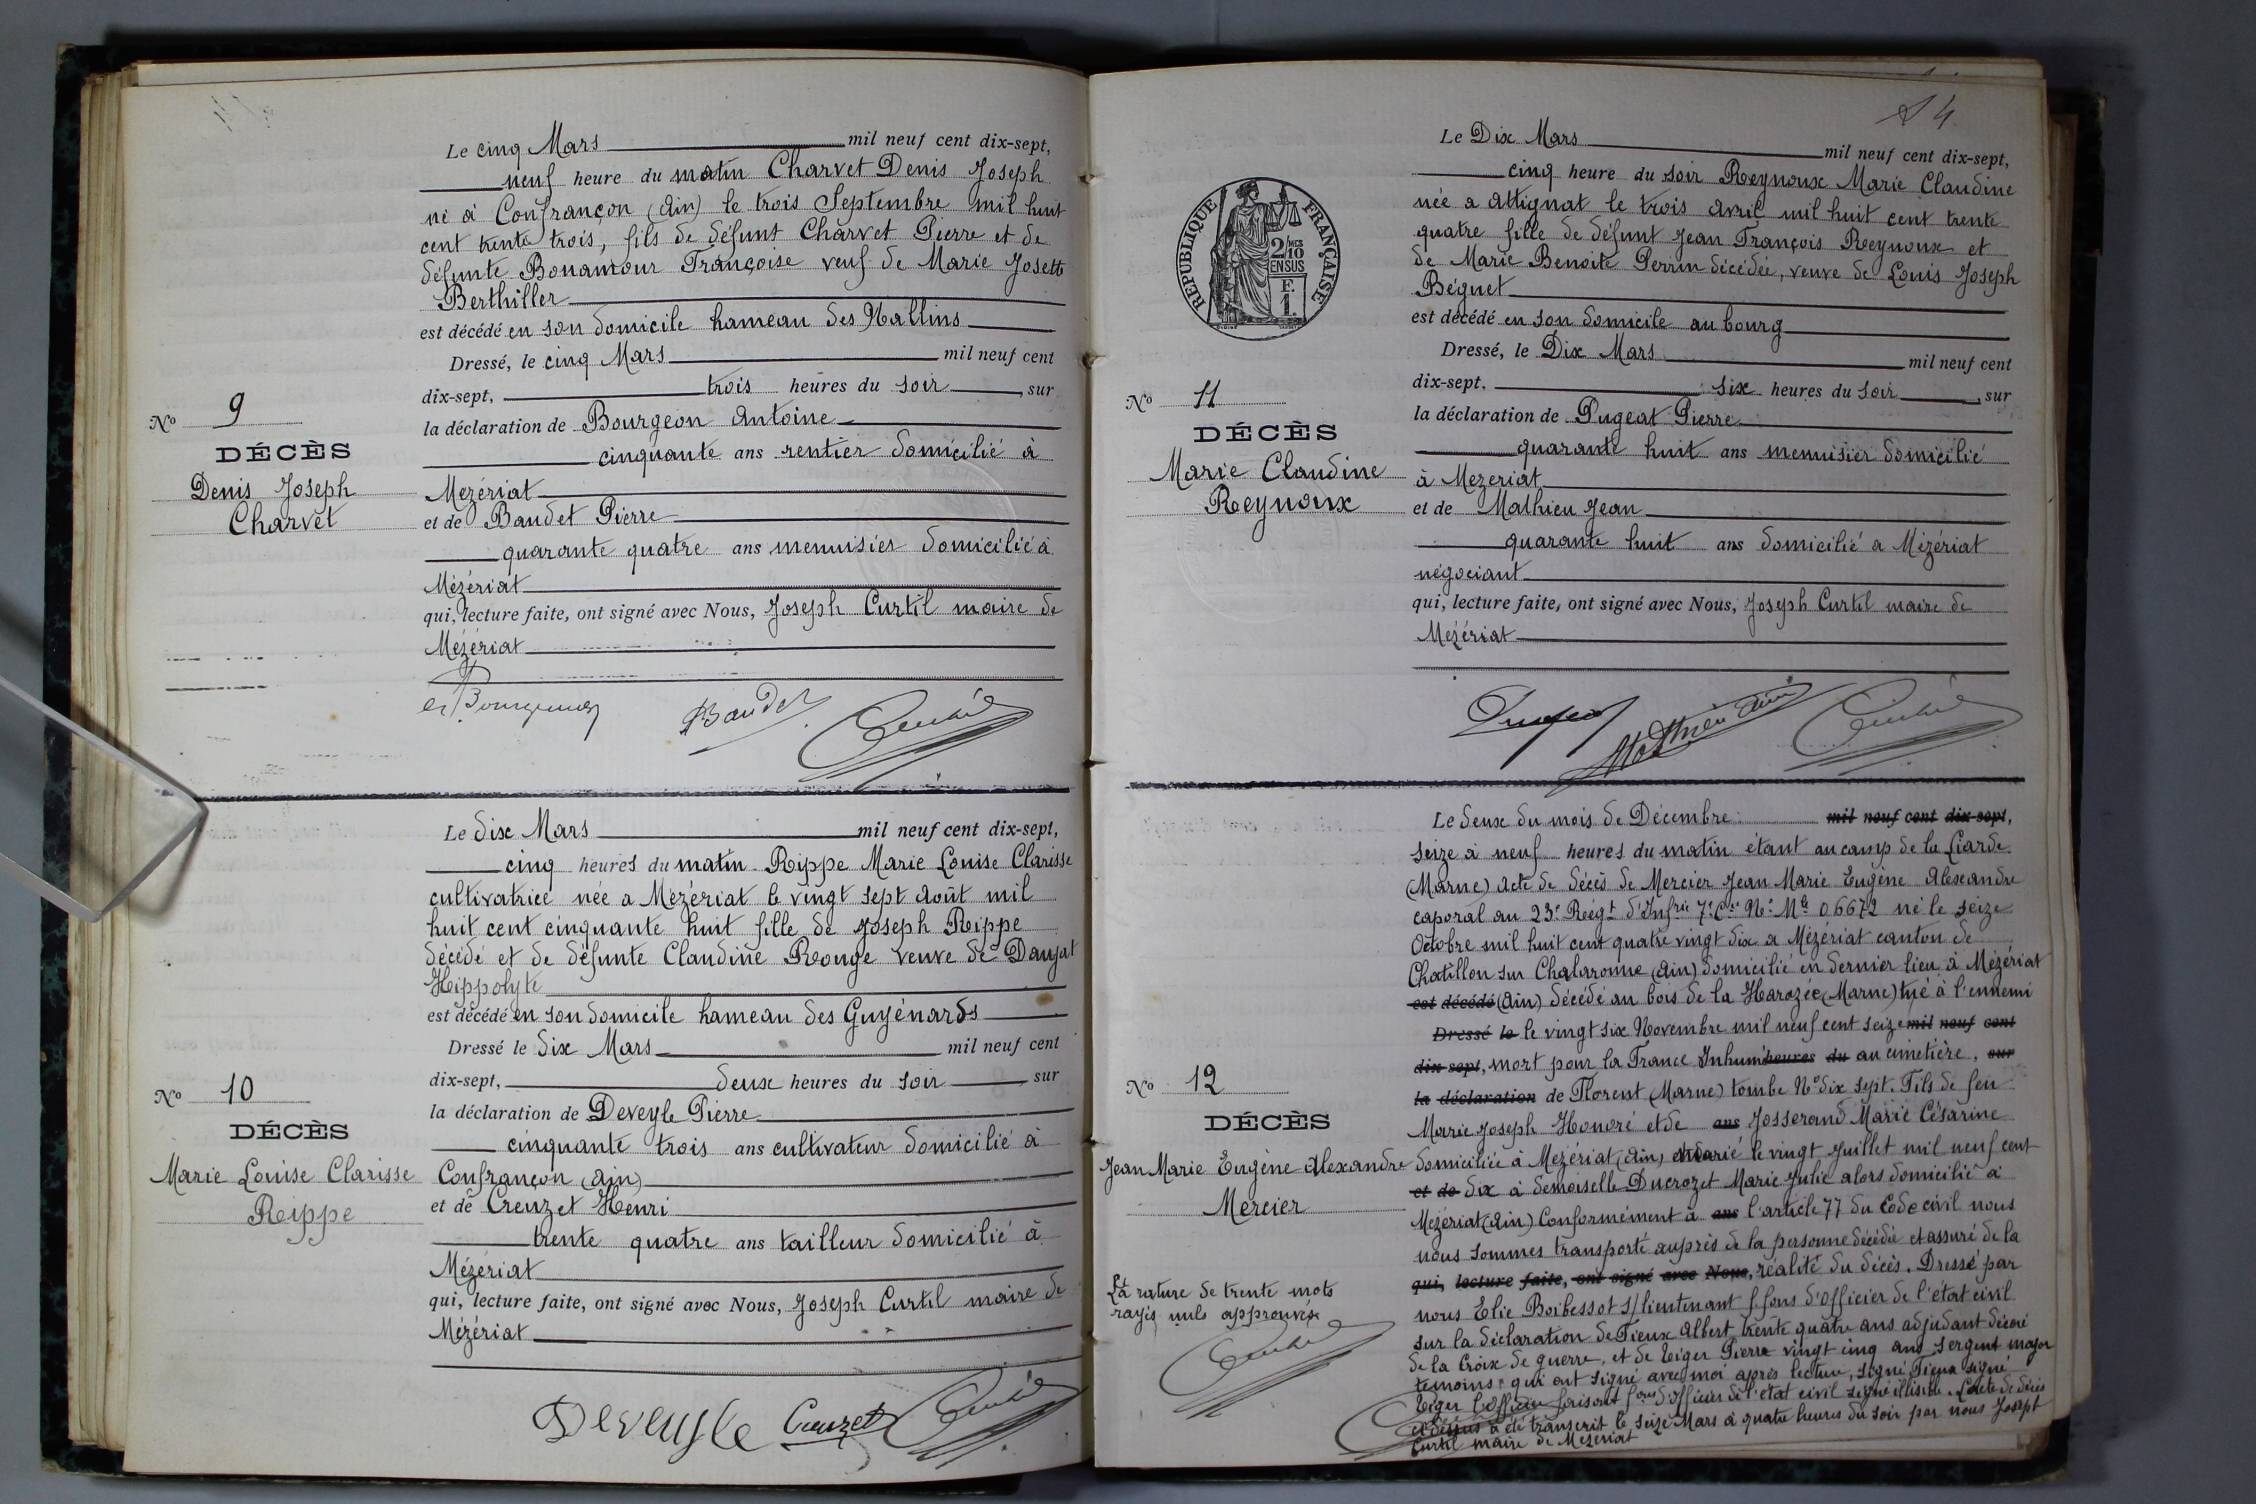 Le cinq Mars mil neuf cent dix-sept,
neuf heure du matin Charvet Denis Joseph
né à Confrançon (Ain) le trois Septembre mil huit
cent trente trois, fils de défunt Charvet Pierre et de
défunte Bonamour Françoise veuf de Marie Josette
Berthiller
est décédé en son domicile hameau des Nallins
Dressé, le cinq Mars mil neuf cent
dix-sept, trois heures du soir, sur
la déclaration de Bourgeon Antoine
cinquante ans rentier domicilié à
Mézériat
et de Baudet Pierre
quarante quatre ans menuisier domicilié à
Mézériat
qui, lecture faite, ont signé avec Nous, Joseph Curtil maire de
Mézériat
Baudet
No 9
DÉCÈS
Denis Joseph
Charvet
Le dix Mars mil neuf cent dix-sept,
cinq heures du matin Rippe Marie Louise Clarisse
cultivatrice née a Mézériat le vingt sept Août mil
huit cent cinquante huit fille de Joseph Rippe
décédé et de défunte Claudine Rouge veuve de Daujat
Hippolyte
est décédé en son domicile hameau des Guyénards
Dressé le dix Mars mil neuf cent
dix-sept, deux heures du soir, sur
la déclaration de Deveyle Pierre
cinquante trois ans cultivateur domicilié à
Confrançon (Ain)
et de Creuzet Henri
trente quatre ans tailleur domicilié à
Mézériat
qui, lecture faite, ont signé avec Nous, Joseph Curtil maire de
Mézériat
Deveyle Creuzet
No 10
DÉCÈS
Marie Louise Clarisse
Rippe
14
RÉPUBLIQUE FRANÇAISE
2/10
EN SUS
F.
1.
Le Dix Mars mil neuf cent dix-sept,
cinq heure du soir Reynoux Marie Claudine
née a Attignat le trois avril mil huit cent trente
quatre fille de défunt Jean François Reynoux et
de Marie Benoite Perrin décédée, veuve de Louis Joseph
Béguet
est décédé en son domicile au bourg
Dressé, le Dix Mars mil neuf cent
dix-sept, six heures du soir, sur
la déclaration de Pugeat Pierre
quarante huit ans menuisier domicilié
à Mezeriat
et de Mathieu Jean
quarante huit ans domicilié a Mézériat
négociant
qui, lecture faite, ont signé avec Nous, Joseph Curtil maire de
Mezériat
No 11
DÉCÈS
Marie Claudine
Reynoux
Le deux du mois de Décembre mil neuf cent dix-sept,
seize à neuf heures du matin étant au camp de la
(Marne) acte de décès de Mercier Jean Marie Eugène Alexandre
caporal au 23e Régt d'Infrie 7e Cie No Mle 06672 né le seize
Octobre mil huit cent quatre vingt dix a Mézériat canton de
Chatillon sur Chalaronne (Ain) domicilié en dernier lieu à Mézériat
est décédé (Ain) décédé au bois de la Harazée (Marne) tué à l'ennemi
Dressé le le vingt six Novembre mil neuf cent seize mil neuf cent
dix-sept, mort pour la France Inhumé heures du au cimetière, sur
la déclaration de Florent (Marne) tombe No dix sept. Fils de feu
Marie Joseph Honoré et de ans Josserand Marie Césarine
domiciliée à Mezériat (Ain) marié le vingt juillet mil neuf cent
et de dix à demoiselle Ducrozet Marie Julie alors domicilié à
Mezériat (Ain) Conformément à ans l'article 77 du Code civil nous
nous sommes transporté auprès de la personne décédée et assuré de la
qui, lecture faite, ont signé avec Nous, réalité du décès. Dressé par
nous Elie Boibessot s/lieutenant f fons d'officier de l'état civil
sur la déclaration de Fieux Albert trente quatre ans adjudant décoré
de la Croix de guerre, et de Liger Pierre vingt cinq ans sergent major
temoins qui ont signé avec moi après lecture, signé Fieux signé
Liger l'officier faisant fons d'officier de l'état civil signé illisible. L'acte de décès
ci dessus a été transcrit le seize Mars à quatre heures du soir par nous Joseph
Curtil maire de Mezeriat
No 12
DÉCÈS
Jean Marie Eugène Alexandre
Mercier
La rature de trente mots
rayés nuls approuvée